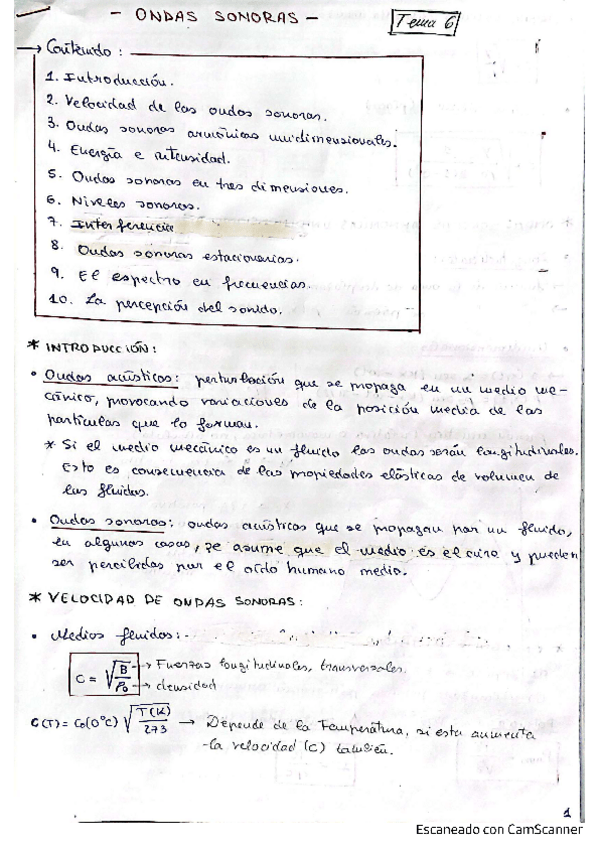 - ONDAS SONORAS -
Tema 6
→ Contenido :
1. Introducción.
2. Velocidad de las ondas sonoras.
3. Ondas sonoras armónicas unidimensionales.
4. Energía e intensidad.
5. Ondas sonoras en tres dimensiones.
6. Niveles sonoros.
7. Interferencia
8. Ondas sonoras estacionarias.
9. El espectro en frecuencias.
10. La percepción del sonido.
* INTRODUCCIÓN:
• Ondas acústicas: perturbación que se propaga en un medio me-
cánico, provocando variaciones de la posición media de las
partículas que lo forman.
* Si el medio mecánico es un fluido las ondas serán longitudinales.
Esto es consecuencia de las propiedades elásticas de volumen de
los fluidos.
• Ondas sonoras: ondas acústicas que se propagan por un fluido,
en algunos casos, se asume que el medio es el aire y pueden
ser percibidas por el oído humano medio.
* VELOCIDAD DE ONDAS SONORAS:
• Medios fluidos:
C = √(B/ρ₀) → Fuerzas longitudinales, transversales.
→ densidad
C(T) = C₀(0°C) √(T(K)/273) → Depende de la Temperatura, si esta aumenta
la velocidad (C) también.
1
Escaneado con CamScanner